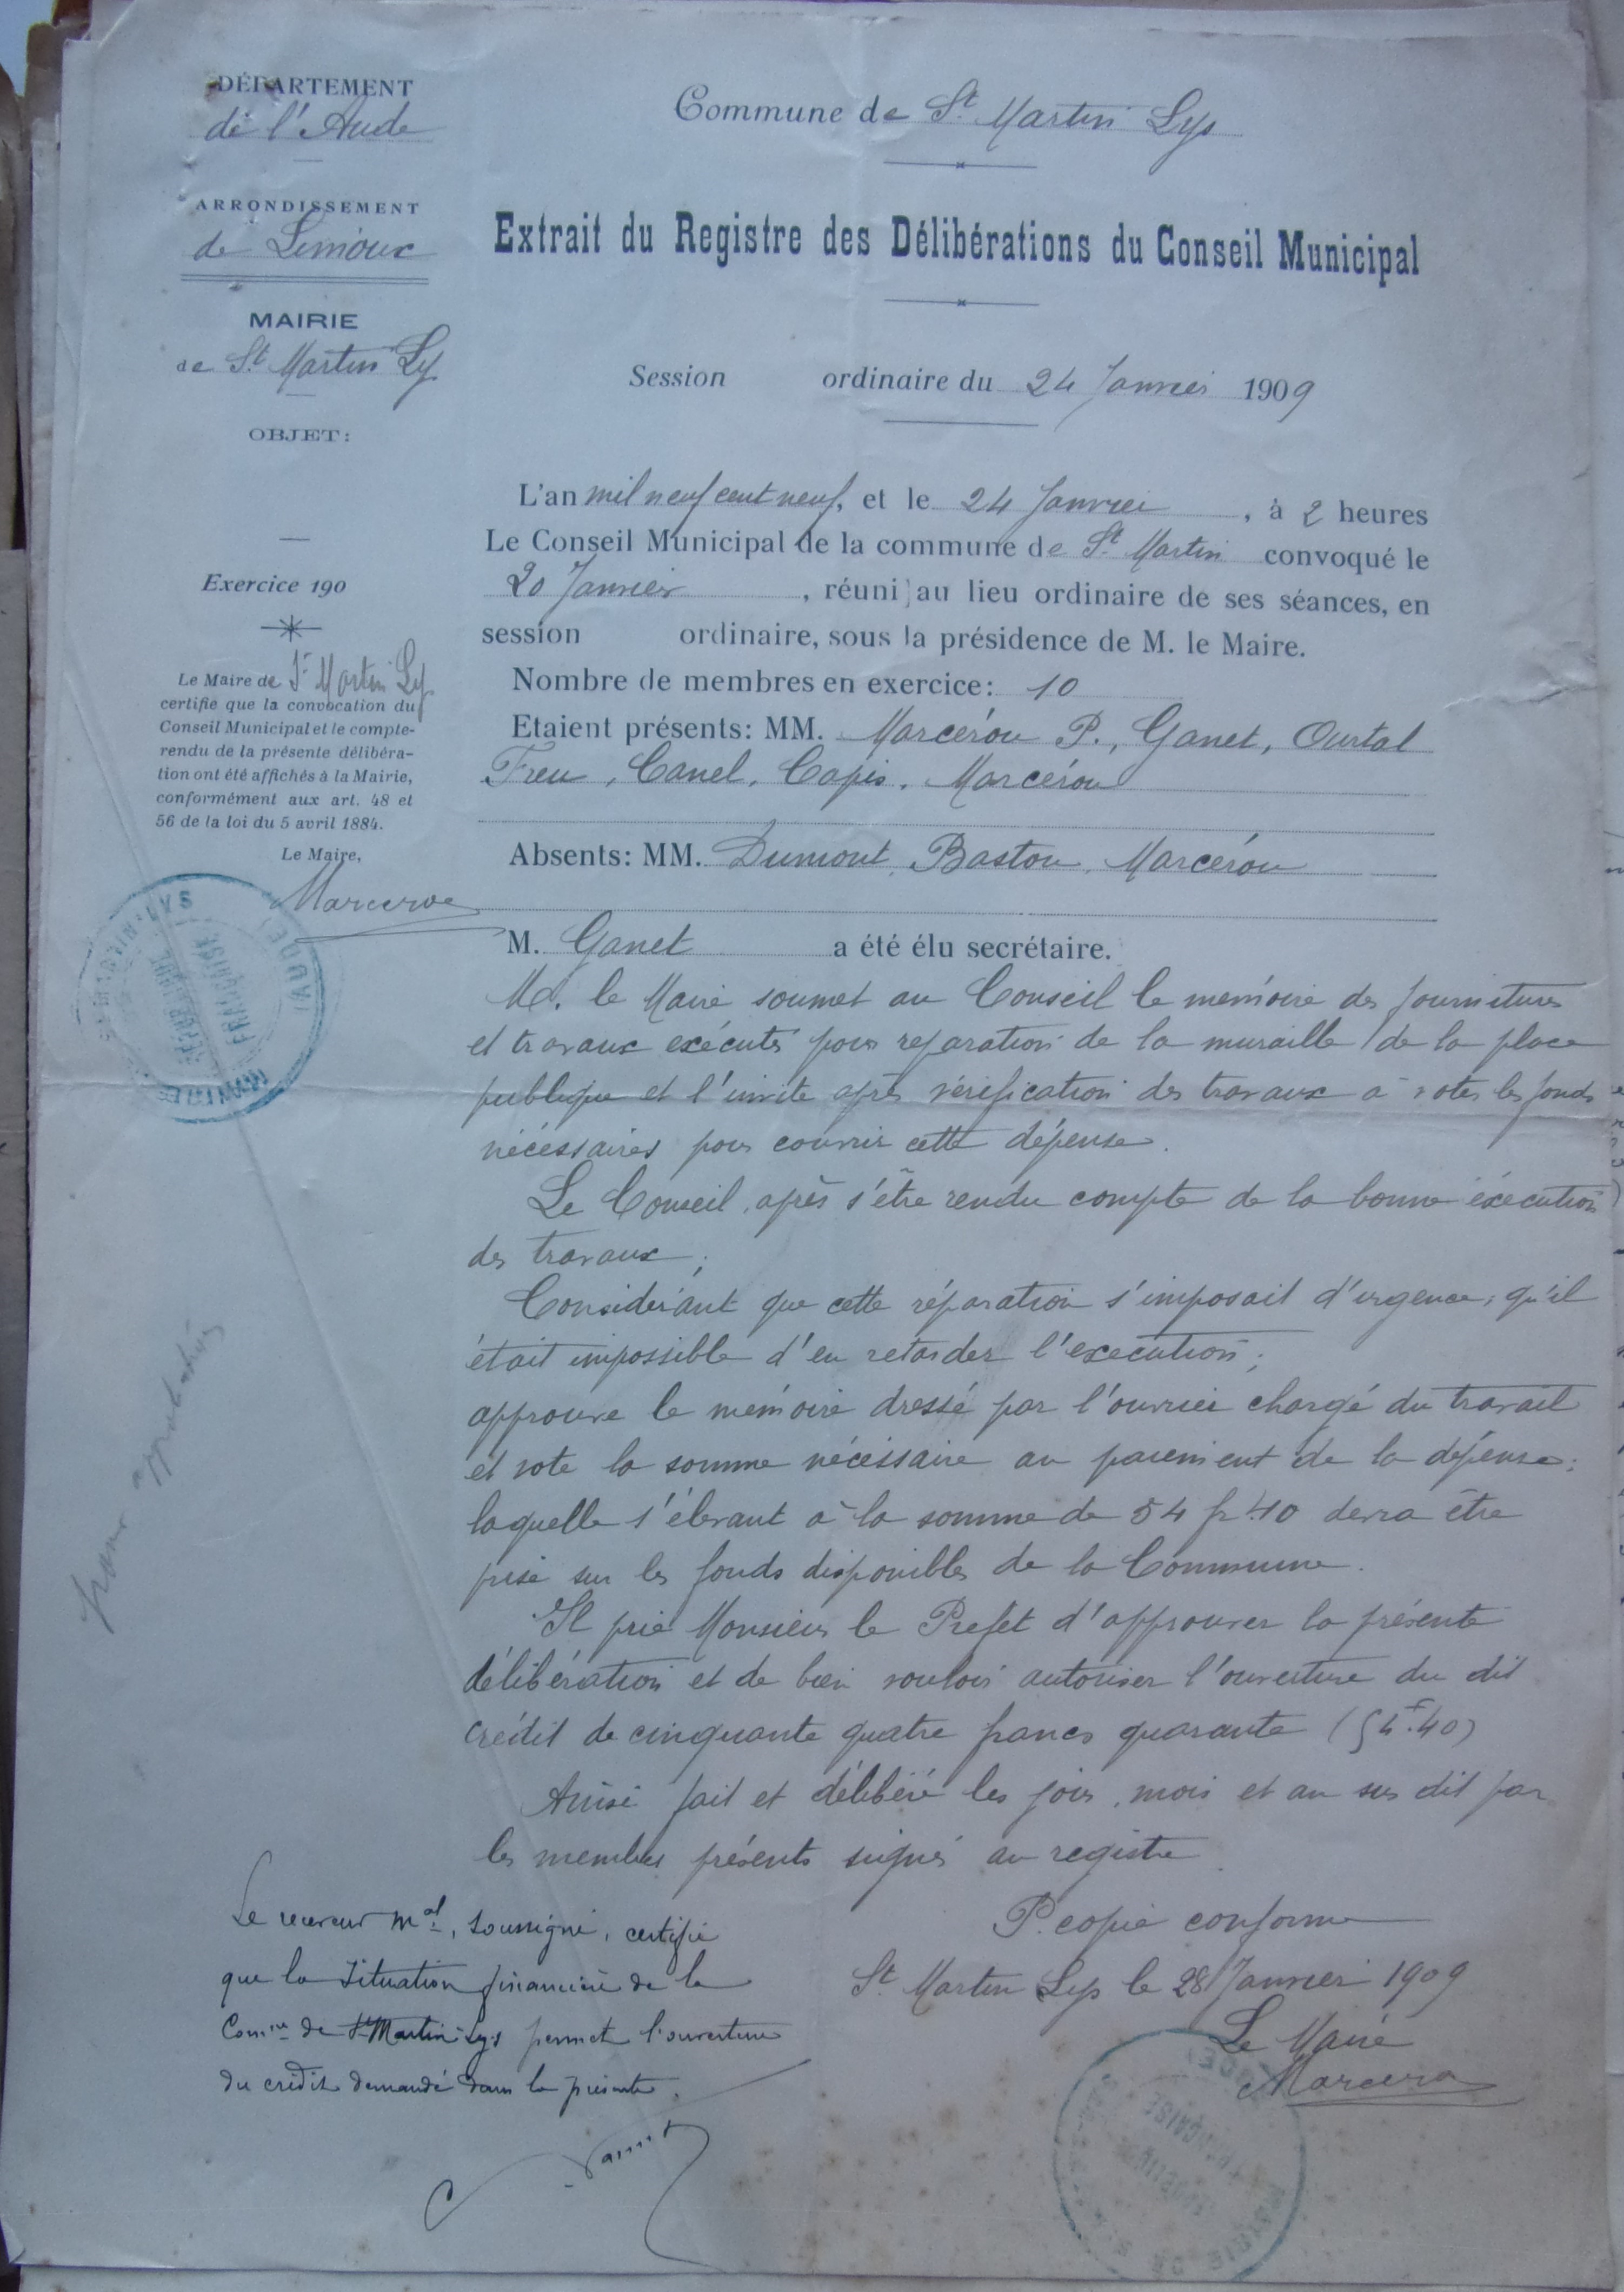 DÉPARTEMENT
de l'Aude
ARRONDISSEMENT
de Limoux
MAIRIE
de St Martin Lys
OBJET:
Exercice 190
Le Maire de St Martin Lys
certifie que la convocation du
Conseil Municipal et le compte-
rendu de la présente délibéra-
tion ont été affichés à la Mairie,
conformément aux art. 48 et
56 de la loi du 5 avril 1884.
Le Maire,
Marcerou
Commune de St. Martin Lys
Extrait du Registre des Délibérations du Conseil Municipal
Session ordinaire du 24 Janvier 1909
L'an mil neuf cent neuf, et le 24 Janvier, à 2 heures
Le Conseil Municipal de la commune de St. Martin convoqué le
20 Janvier, réuni au lieu ordinaire de ses séances, en
session ordinaire, sous la présidence de M. le Maire.
Nombre de membres en exercice: 10
Etaient présents: MM. Marcérou P., Ganet, Ourtal
Freu, Canel, Capis, Marcérou
Absents: MM. Dumont, Baston, Marcérou
M. Ganet a été élu secrétaire.
M. le Maire soumet au Conseil le mémoire des fournitures
et travaux exécutés pour réparation de la muraille de la place
publique et l'invite après vérification des travaux à voter les fonds
nécessaires pour couvrir cette dépense.
Le Conseil, après s'être rendu compte de la bonne éxécution
des travaux;
Considérant que cette réparation s'imposait d'urgence, qu'il
était impossible d'en retarder l'exécution;
approuve le mémoire dressé par l'ouvrier chargé du travail
et vote la somme nécessaire au paiement de la dépense;
laquelle s'élevant à la somme de 54 fr.40 devra être
prise sur les fonds disponibles de la Commune.
Il prie Monsieur le Préfet d'approuver la présente
délibération et de bien vouloir autoriser l'ouverture du dit
crédit de cinquante quatre francs quarante (54f.40)
Ainsi fait et délibéré les jour, mois et an sus dit par
les membres présents signés au registre
P. copie conforme
St. Martin Lys le 28 Janvier 1909
Le Maire
Marcerou
Le receveur mal, soussigné, certifie
que la situation financière de la
Comne de St Martin-Lys permet l'ouverture
du crédit demandé dans la présente.
pour approbation
RÉPUBLIQUE
FRANÇAISE
(AUDE)